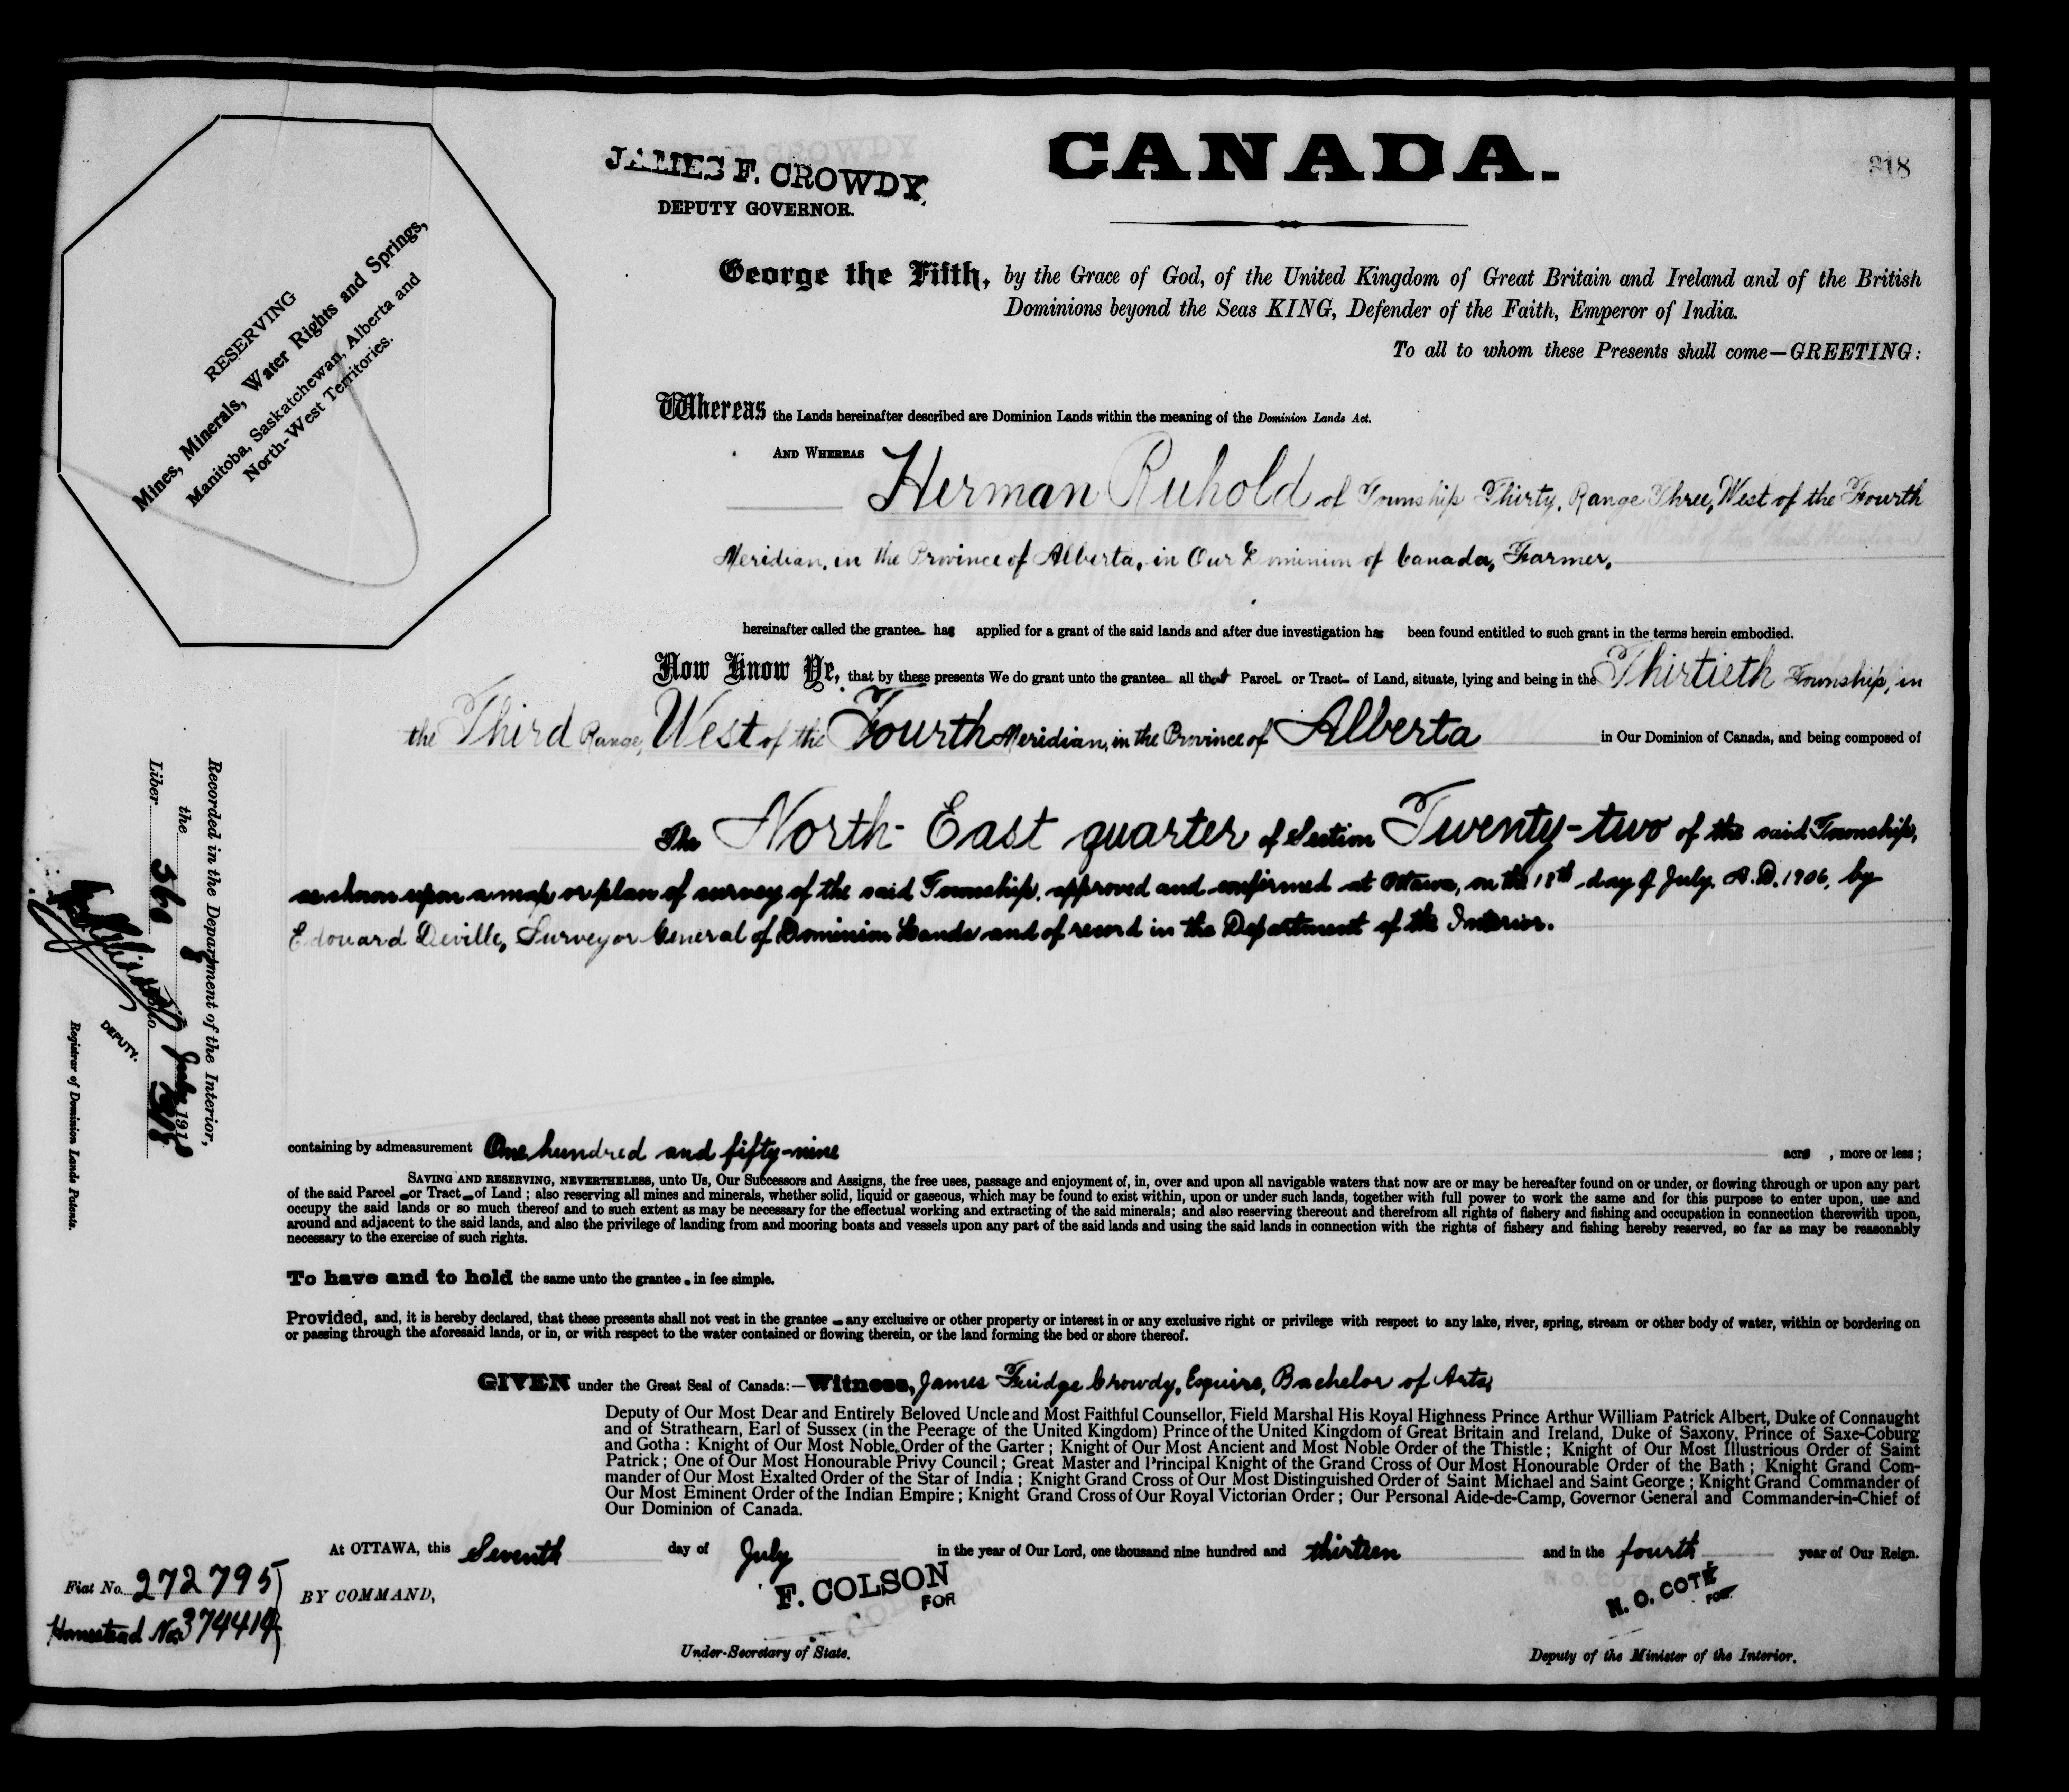 CANADA.
JAMES F. CROWDY,
DEPUTY GOVERNOR.
218
RESERVING
Mines, Minerals, Water Rights and Springs,
Manitoba, Saskatchewan, Alberta and
North-West Territories.
George the Fifth, by the Grace of God, of the United Kingdom of Great Britain and Ireland and of the British
Dominions beyond the Seas KING, Defender of the Faith, Emperor of India.
To all to whom these Presents shall come—GREETING:
Whereas the Lands hereinafter described are Dominion Lands within the meaning of the Dominion Lands Act.
AND WHEREAS
Herman Ruhold of Township Thirty, Range Three, West of the Fourth
Meridian, in the Province of Alberta, in Our Dominion of Canada, Farmer,
hereinafter called the grantee has applied for a grant of the said lands and after due investigation has been found entitled to such grant in the terms herein embodied.
Now Know Ye, that by these presents We do grant unto the grantee all that Parcel or Tract of Land, situate, lying and being in the Thirtieth Township, in
the Third Range, West of the Fourth Meridian, in the Province of Alberta in Our Dominion of Canada, and being composed of
The North-East quarter of Section Twenty-two of the said Township,
as shown upon a map or plan of survey of the said Township, approved and confirmed at Ottawa, on the 18th day of July, A.D. 1906, by
Edouard Deville, Surveyor General of Dominion Lands and of record in the Department of the Interior.
Recorded in the Department of the Interior,
the 8 July 1913
Liber 360 Folio 218
DEPUTY.
Registrar of Dominion Lands Patents.
containing by admeasurement One hundred and fifty-nine acres, more or less;
SAVING AND RESERVING, NEVERTHELESS, unto Us, Our Successors and Assigns, the free uses, passage and enjoyment of, in, over and upon all navigable waters that now are or may be hereafter found on or under, or flowing through or upon any part
of the said Parcel or Tract of Land; also reserving all mines and minerals, whether solid, liquid or gaseous, which may be found to exist within, upon or under such lands, together with full power to work the same and for this purpose to enter upon, use and
occupy the said lands or so much thereof and to such extent as may be necessary for the effectual working and extracting of the said minerals; and also reserving thereout and therefrom all rights of fishery and fishing and occupation in connection therewith upon,
around and adjacent to the said lands, and also the privilege of landing from and mooring boats and vessels upon any part of the said lands and using the said lands in connection with the rights of fishery and fishing hereby reserved, so far as may be reasonably
necessary to the exercise of such rights.
To have and to hold the same unto the grantee in fee simple.
Provided, and, it is hereby declared, that these presents shall not vest in the grantee any exclusive or other property or interest in or any exclusive right or privilege with respect to any lake, river, spring, stream or other body of water, within or bordering on
or passing through the aforesaid lands, or in, or with respect to the water contained or flowing therein, or the land forming the bed or shore thereof.
GIVEN under the Great Seal of Canada:—Witness, James Fuidge Crowdy, Esquire, Bachelor of Arts,
Deputy of Our Most Dear and Entirely Beloved Uncle and Most Faithful Counsellor, Field Marshal His Royal Highness Prince Arthur William Patrick Albert, Duke of Connaught
and of Strathearn, Earl of Sussex (in the Peerage of the United Kingdom) Prince of the United Kingdom of Great Britain and Ireland, Duke of Saxony, Prince of Saxe-Coburg
and Gotha: Knight of Our Most Noble Order of the Garter; Knight of Our Most Ancient and Most Noble Order of the Thistle; Knight of Our Most Illustrious Order of Saint
Patrick; One of Our Most Honourable Privy Council; Great Master and Principal Knight of the Grand Cross of Our Most Honourable Order of the Bath; Knight Grand Com-
mander of Our Most Exalted Order of the Star of India; Knight Grand Cross of Our Most Distinguished Order of Saint Michael and Saint George; Knight Grand Commander of
Our Most Eminent Order of the Indian Empire; Knight Grand Cross of Our Royal Victorian Order; Our Personal Aide-de-Camp, Governor General and Commander-in-Chief of
Our Dominion of Canada.
At OTTAWA, this Seventh day of July in the year of Our Lord, one thousand nine hundred and thirteen and in the fourth year of Our Reign.
Fiat No. 272795
BY COMMAND,
F. COLSON
FOR
N. O. COTÉ
FOR
Homestead No. 374414
Under-Secretary of State.
Deputy of the Minister of the Interior.